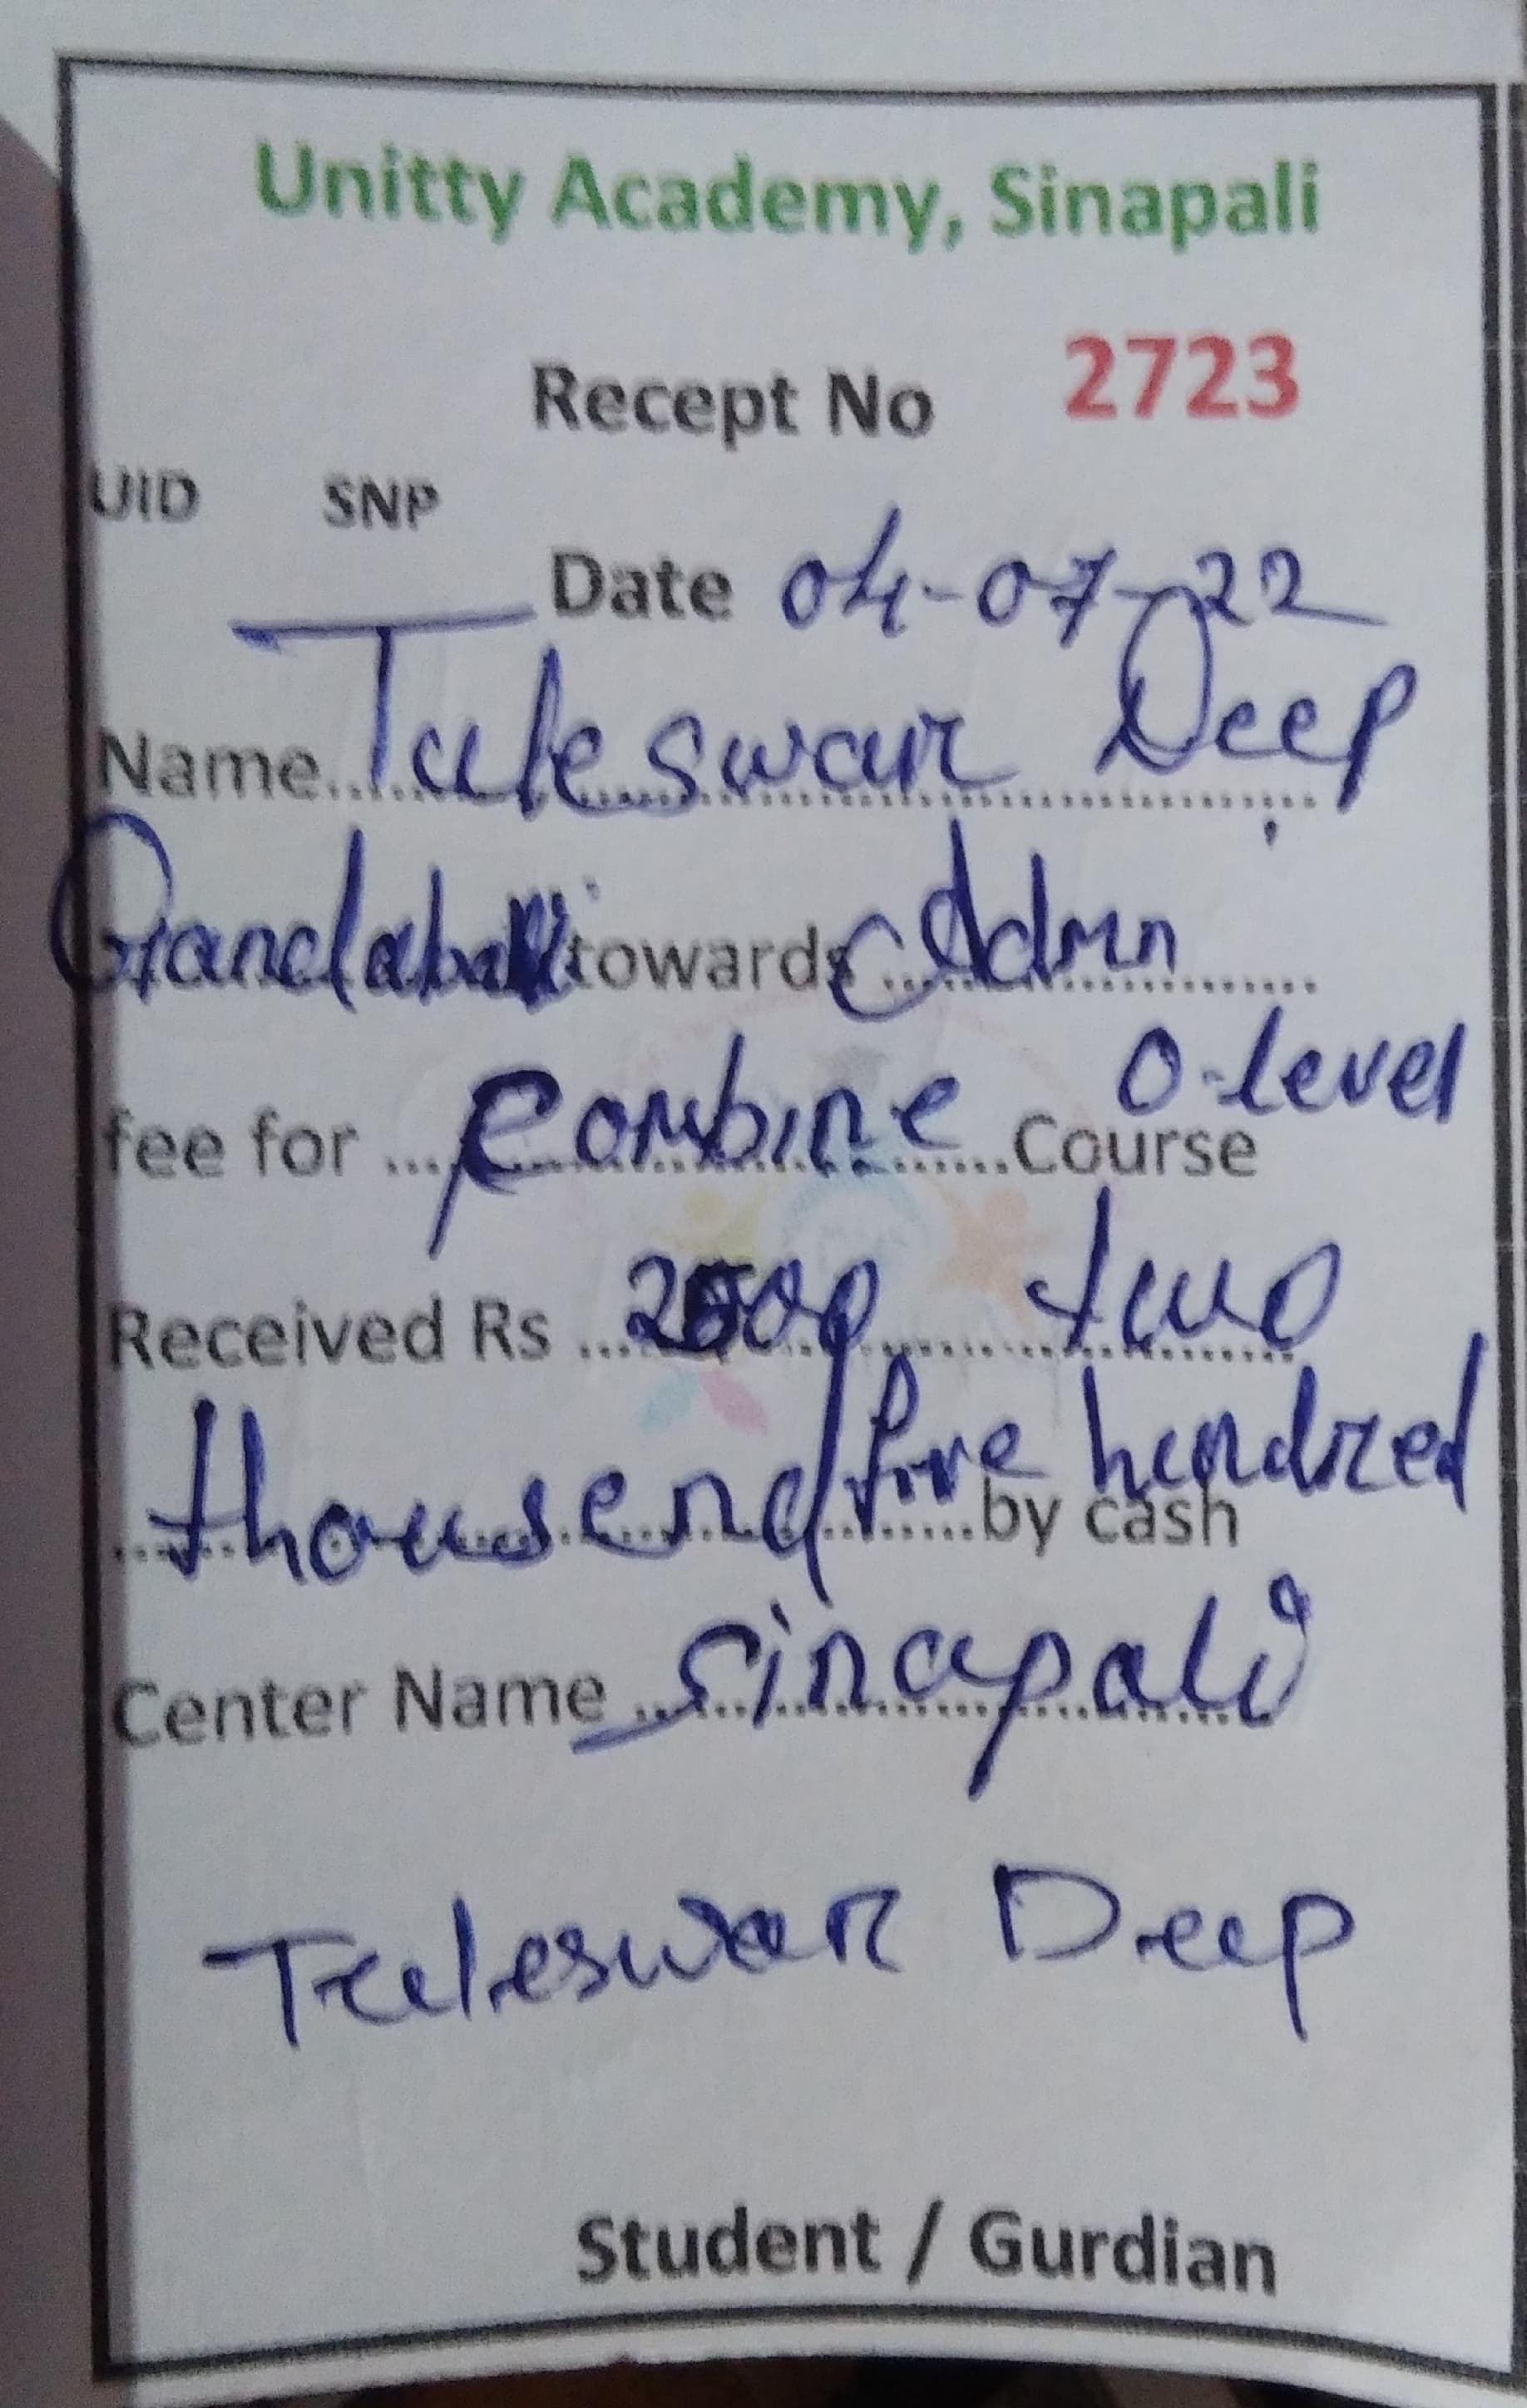 Unitty Academy, Sinapali
Recept No 2723
UID SNP
Date 04-07-22
Name Tuleswar Deep
towards Admn
fee for Combine O-level Course
Received Rs 2500 two
thousend five hundred by cash
Center Name Sinapali
Tuleswar Deep
Student / Gurdian